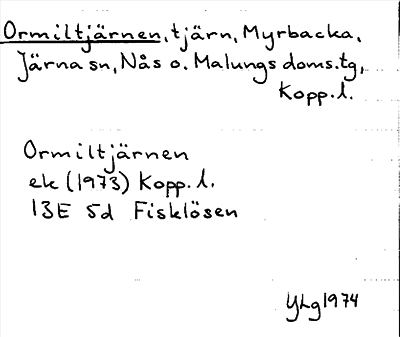 Ormiltjärnen, tjärn, Myrbacka,
Järna sn, Nås o. Malungs doms.tg,
Kopp.l.
Ormiltjärnen
ek (1973) Kopp.l.
13E 5d Fisklösen
YLg 1974